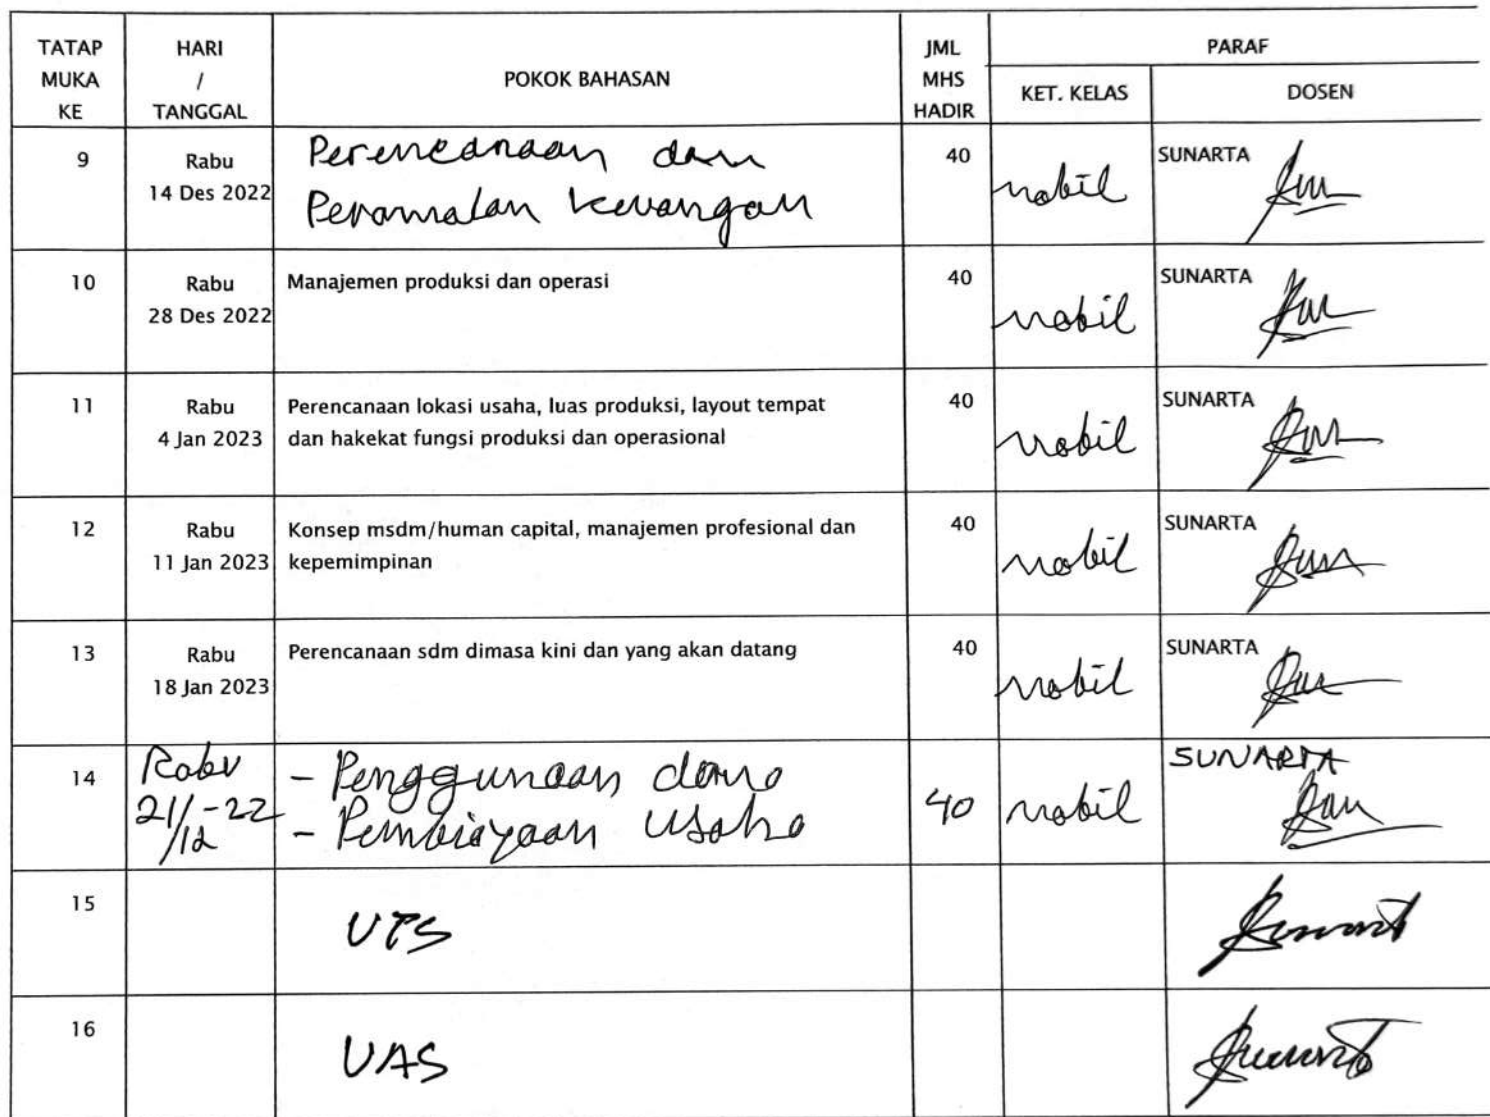 TATAP MUKA KE	HARI / TANGGAL	POKOK BAHASAN	JML MHS HADIR	PARAF
KET. KELAS	DOSEN
9	Rabu 14 Des 2022	Perencanaan dan Peramalan keuangan	40	nabil	SUNARTA
10	Rabu 28 Des 2022	Manajemen produksi dan operasi	40	nabil	SUNARTA
11	Rabu 4 Jan 2023	Perencanaan lokasi usaha, luas produksi, layout tempat dan hakekat fungsi produksi dan operasional	40	nabil	SUNARTA
12	Rabu 11 Jan 2023	Konsep msdm/human capital, manajemen profesional dan kepemimpinan	40	nabil	SUNARTA
13	Rabu 18 Jan 2023	Perencanaan sdm dimasa kini dan yang akan datang	40	nabil	SUNARTA
14	Rabu 21/12-22	- Penggunaan dana - Pembiayaan Usaha	40	nabil	SUNARTA
15	UTS
16	UAS